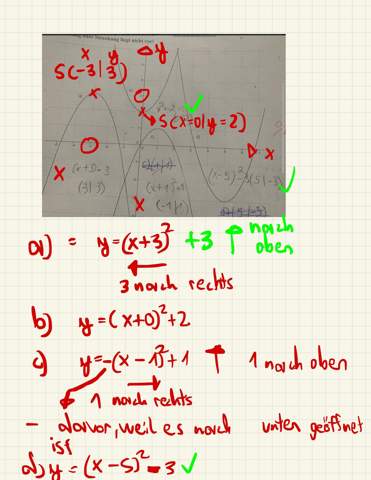 x y
y
S(-3|3)
S(x=0|y=2)
x
(x+3)=3
(3|3)
(x+1)²+1
(-1|1)
(x-5)²-3(5|-3)
a) = y=(x+3)² +3 ↑ nach oben
3 nach rechts
b) y=(x+0)²+2
c) y=-(x-1)²+1 ↑ 1 nach oben
1 nach rechts
- davor, weil es nach unten geöffnet
ist
d) y=(x-5)²-3